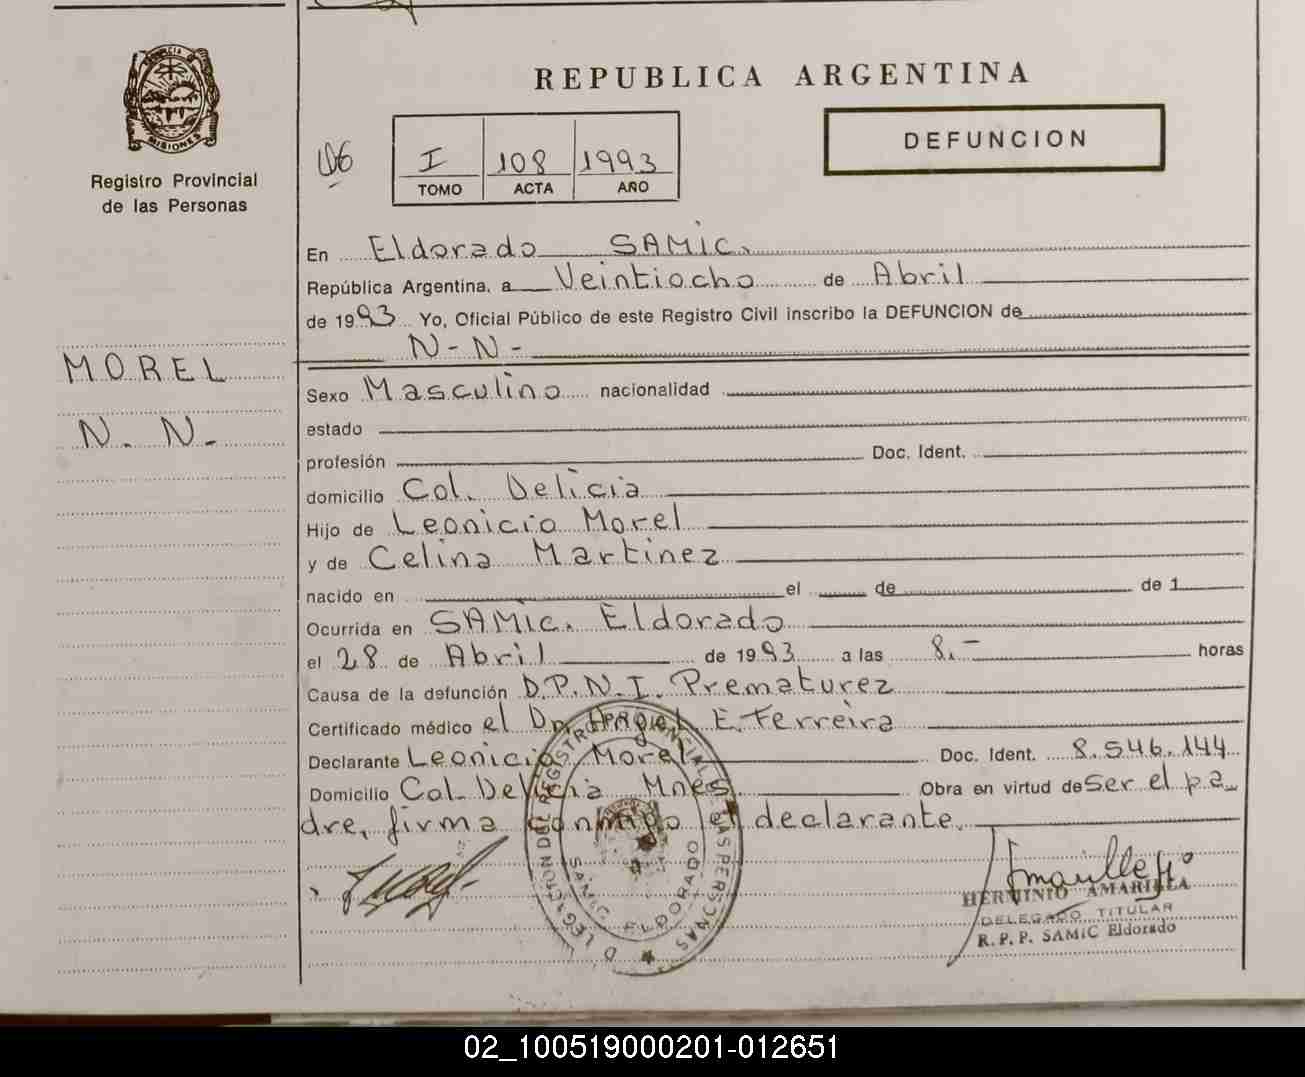 PROVINCIA DE MISIONES
Registro Provincial
de las Personas
MOREL
N. N.
REPUBLICA ARGENTINA
I 108 1993
TOMO ACTA AÑO
DEFUNCION
En Eldorado SAMIC.
República Argentina, a Veintiocho de Abril
de 1993 Yo, Oficial Público de este Registro Civil inscribo la DEFUNCION de
N-N-
Sexo Masculino nacionalidad
estado
profesión Doc. Ident.
domicilio Col. Delicia
Hijo de Leonicio Morel
y de Celina Martinez
nacido en el de de 1
Ocurrida en SAMIC. Eldorado
el 28 de Abril de 1993 a las 8.- horas
Causa de la defunción D.P.N.I. Prematurez
Certificado médico el Dr. Angel E. Ferreira
Declarante Leonicio Morel Doc. Ident. 8.546.144
Domicilio Col. Delicia Mnes Obra en virtud de Ser el pa
dre, firma conmigo el declarante.
DELEGACION DEL REGISTRO PROVINCIAL DE LAS PERSONAS
SAMIC ELDORADO
HERMINIO AMARILLA
DELEGADO TITULAR
R. P. P. SAMIC Eldorado
02_100519000201-012651